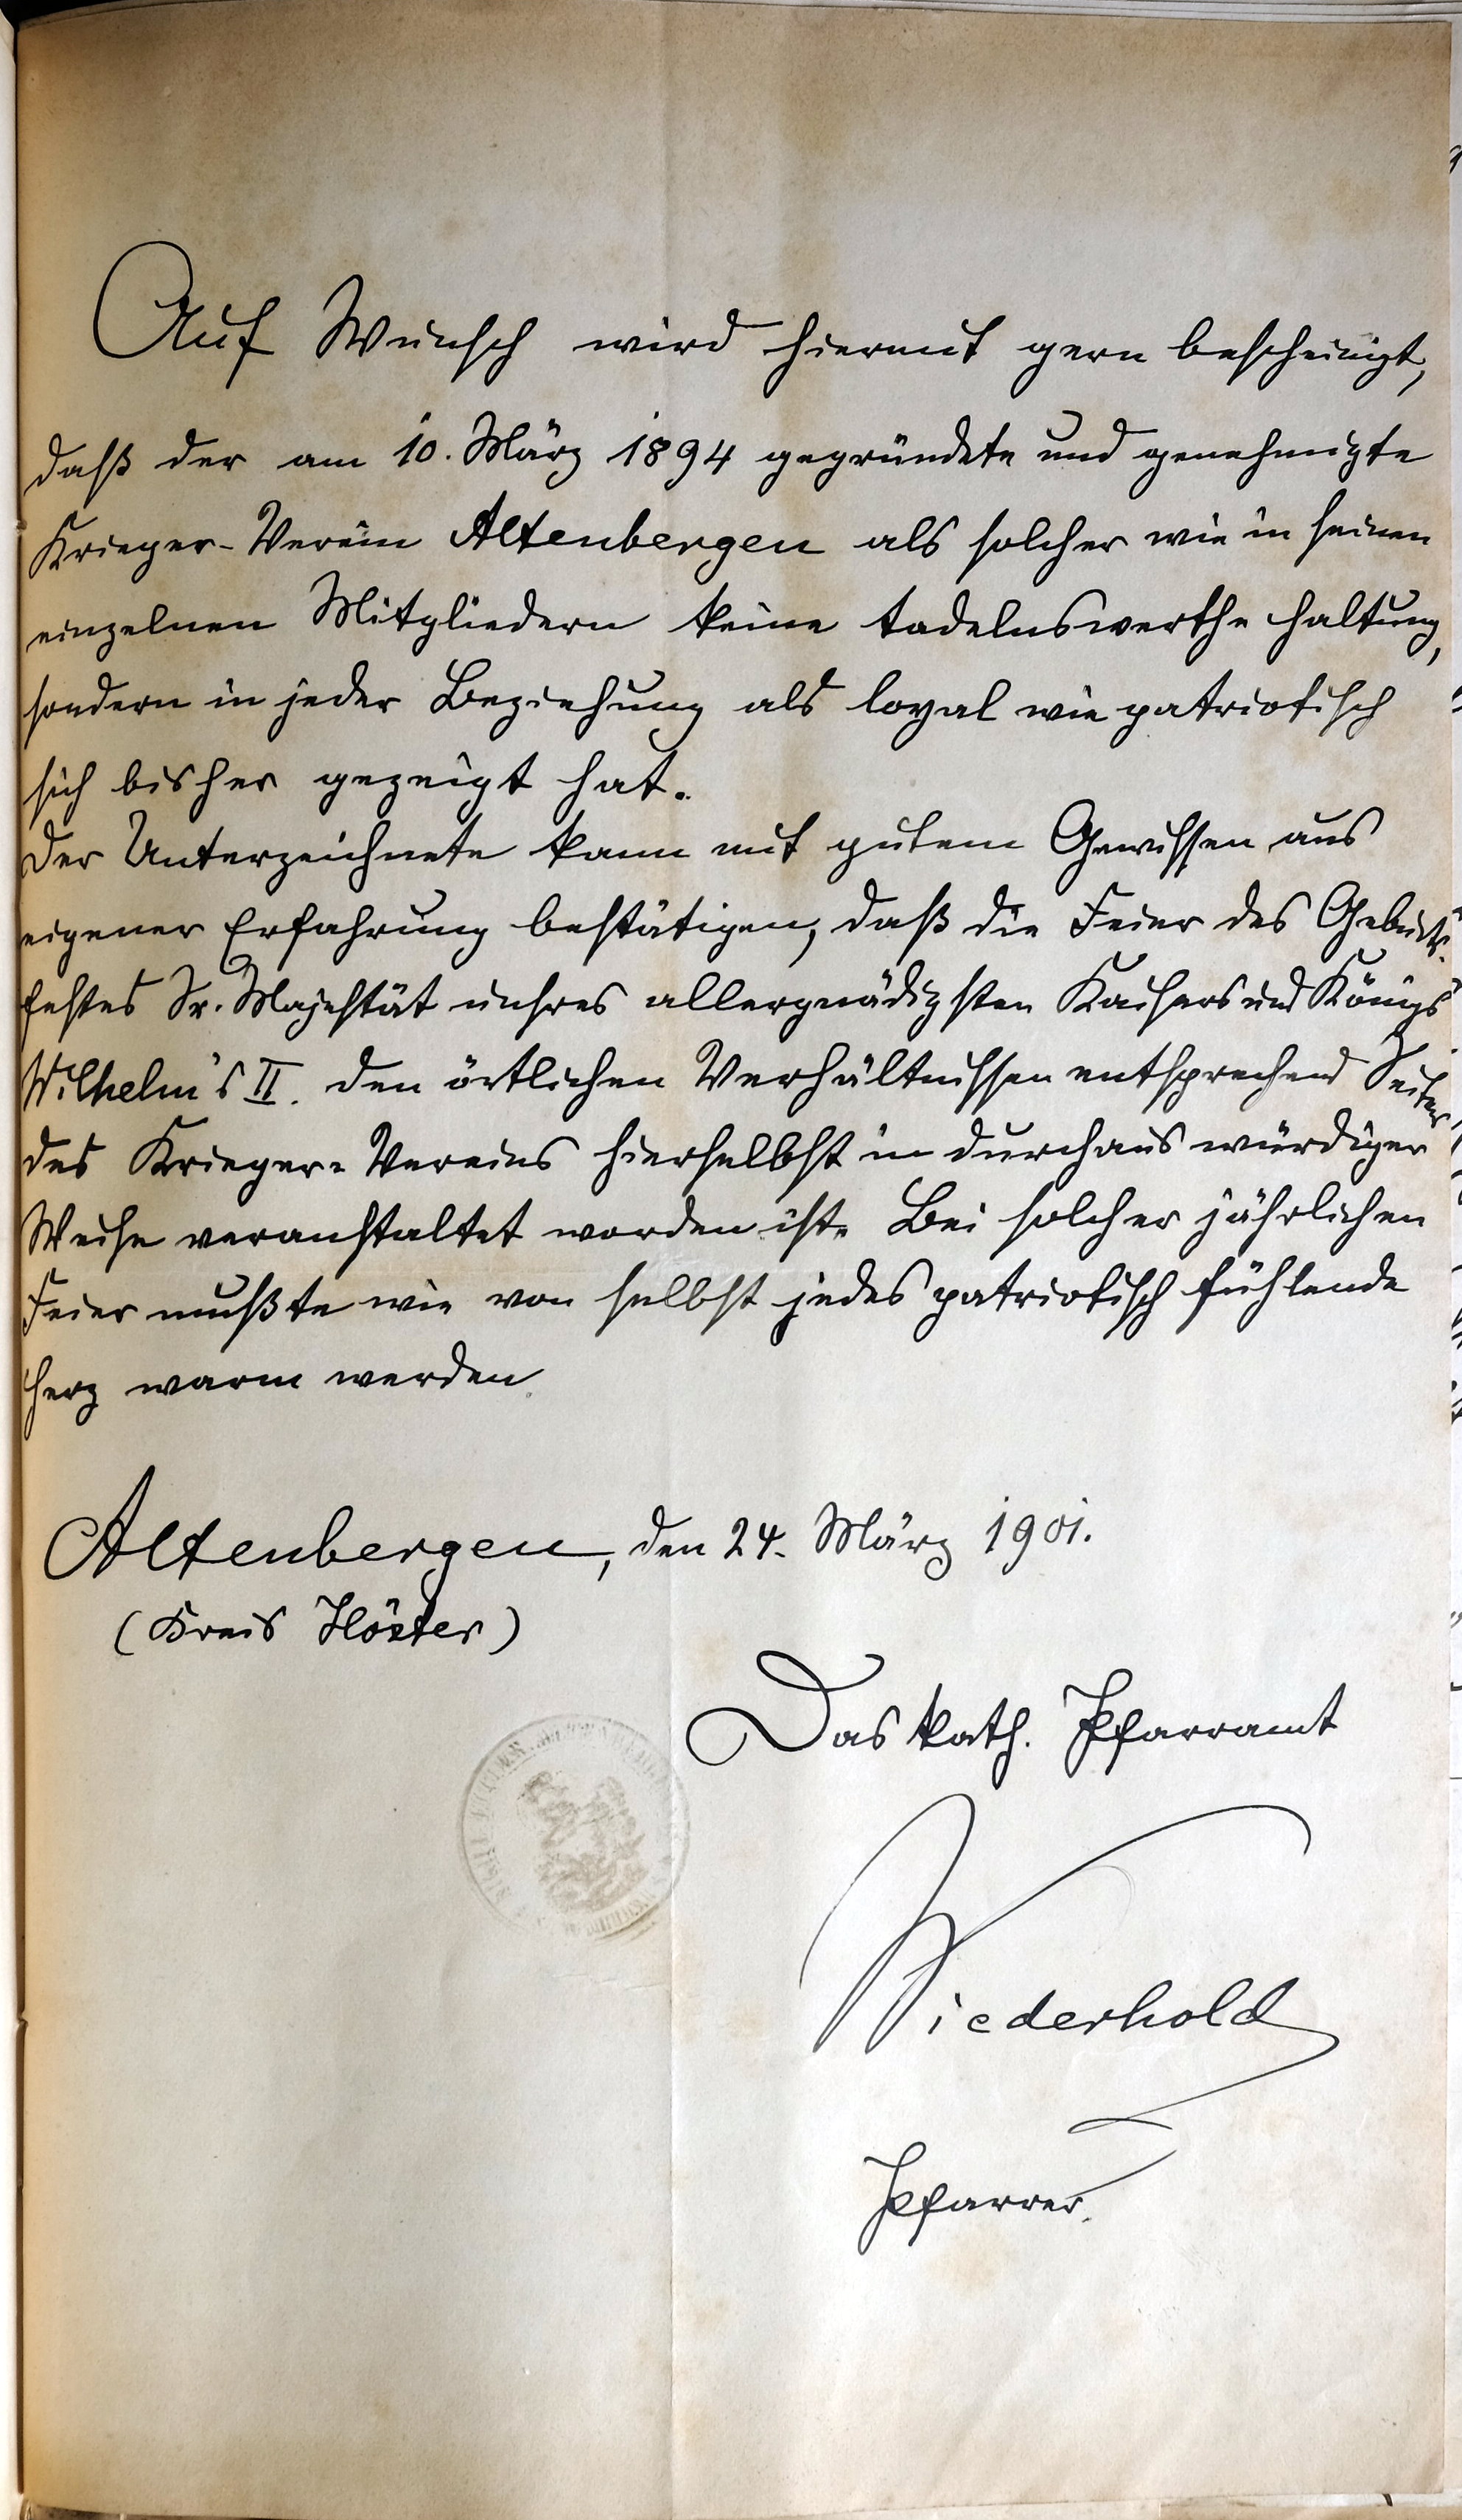 Auf Wunsch wird hiermit gern bescheinigt,
daß der am 10. März 1894 gegründete und genehmigte
Krieger-Verein Altenbergen als solcher wie in seinen
einzelnen Mitgliedern keine tadelnswerthe Haltung,
sondern in jeder Beziehung als loyal wie patriotisch
sich bisher gezeigt hat.
Der Unterzeichnete kann mit gutem Gewissen aus
eigener Erfahrung bestätigen, daß die Feier des Geburts-
festes Sr. Majestät unsres allergnädigsten Kaisers und Königs
Wilhelm's II. den örtlichen Verhältnissen entsprechend Seitens
des Krieger-Vereins hierselbst in durchaus würdiger
Weise veranstaltet worden ist. Bei solcher jährlichen
Feier mußte wie von selbst jedes patriotisch fühlende
Herz warm werden.
Altenbergen, den 24. März 1901.
(Kreis Höxter)
Das kath. Pfarramt
Wiederhold
Pfarrer.